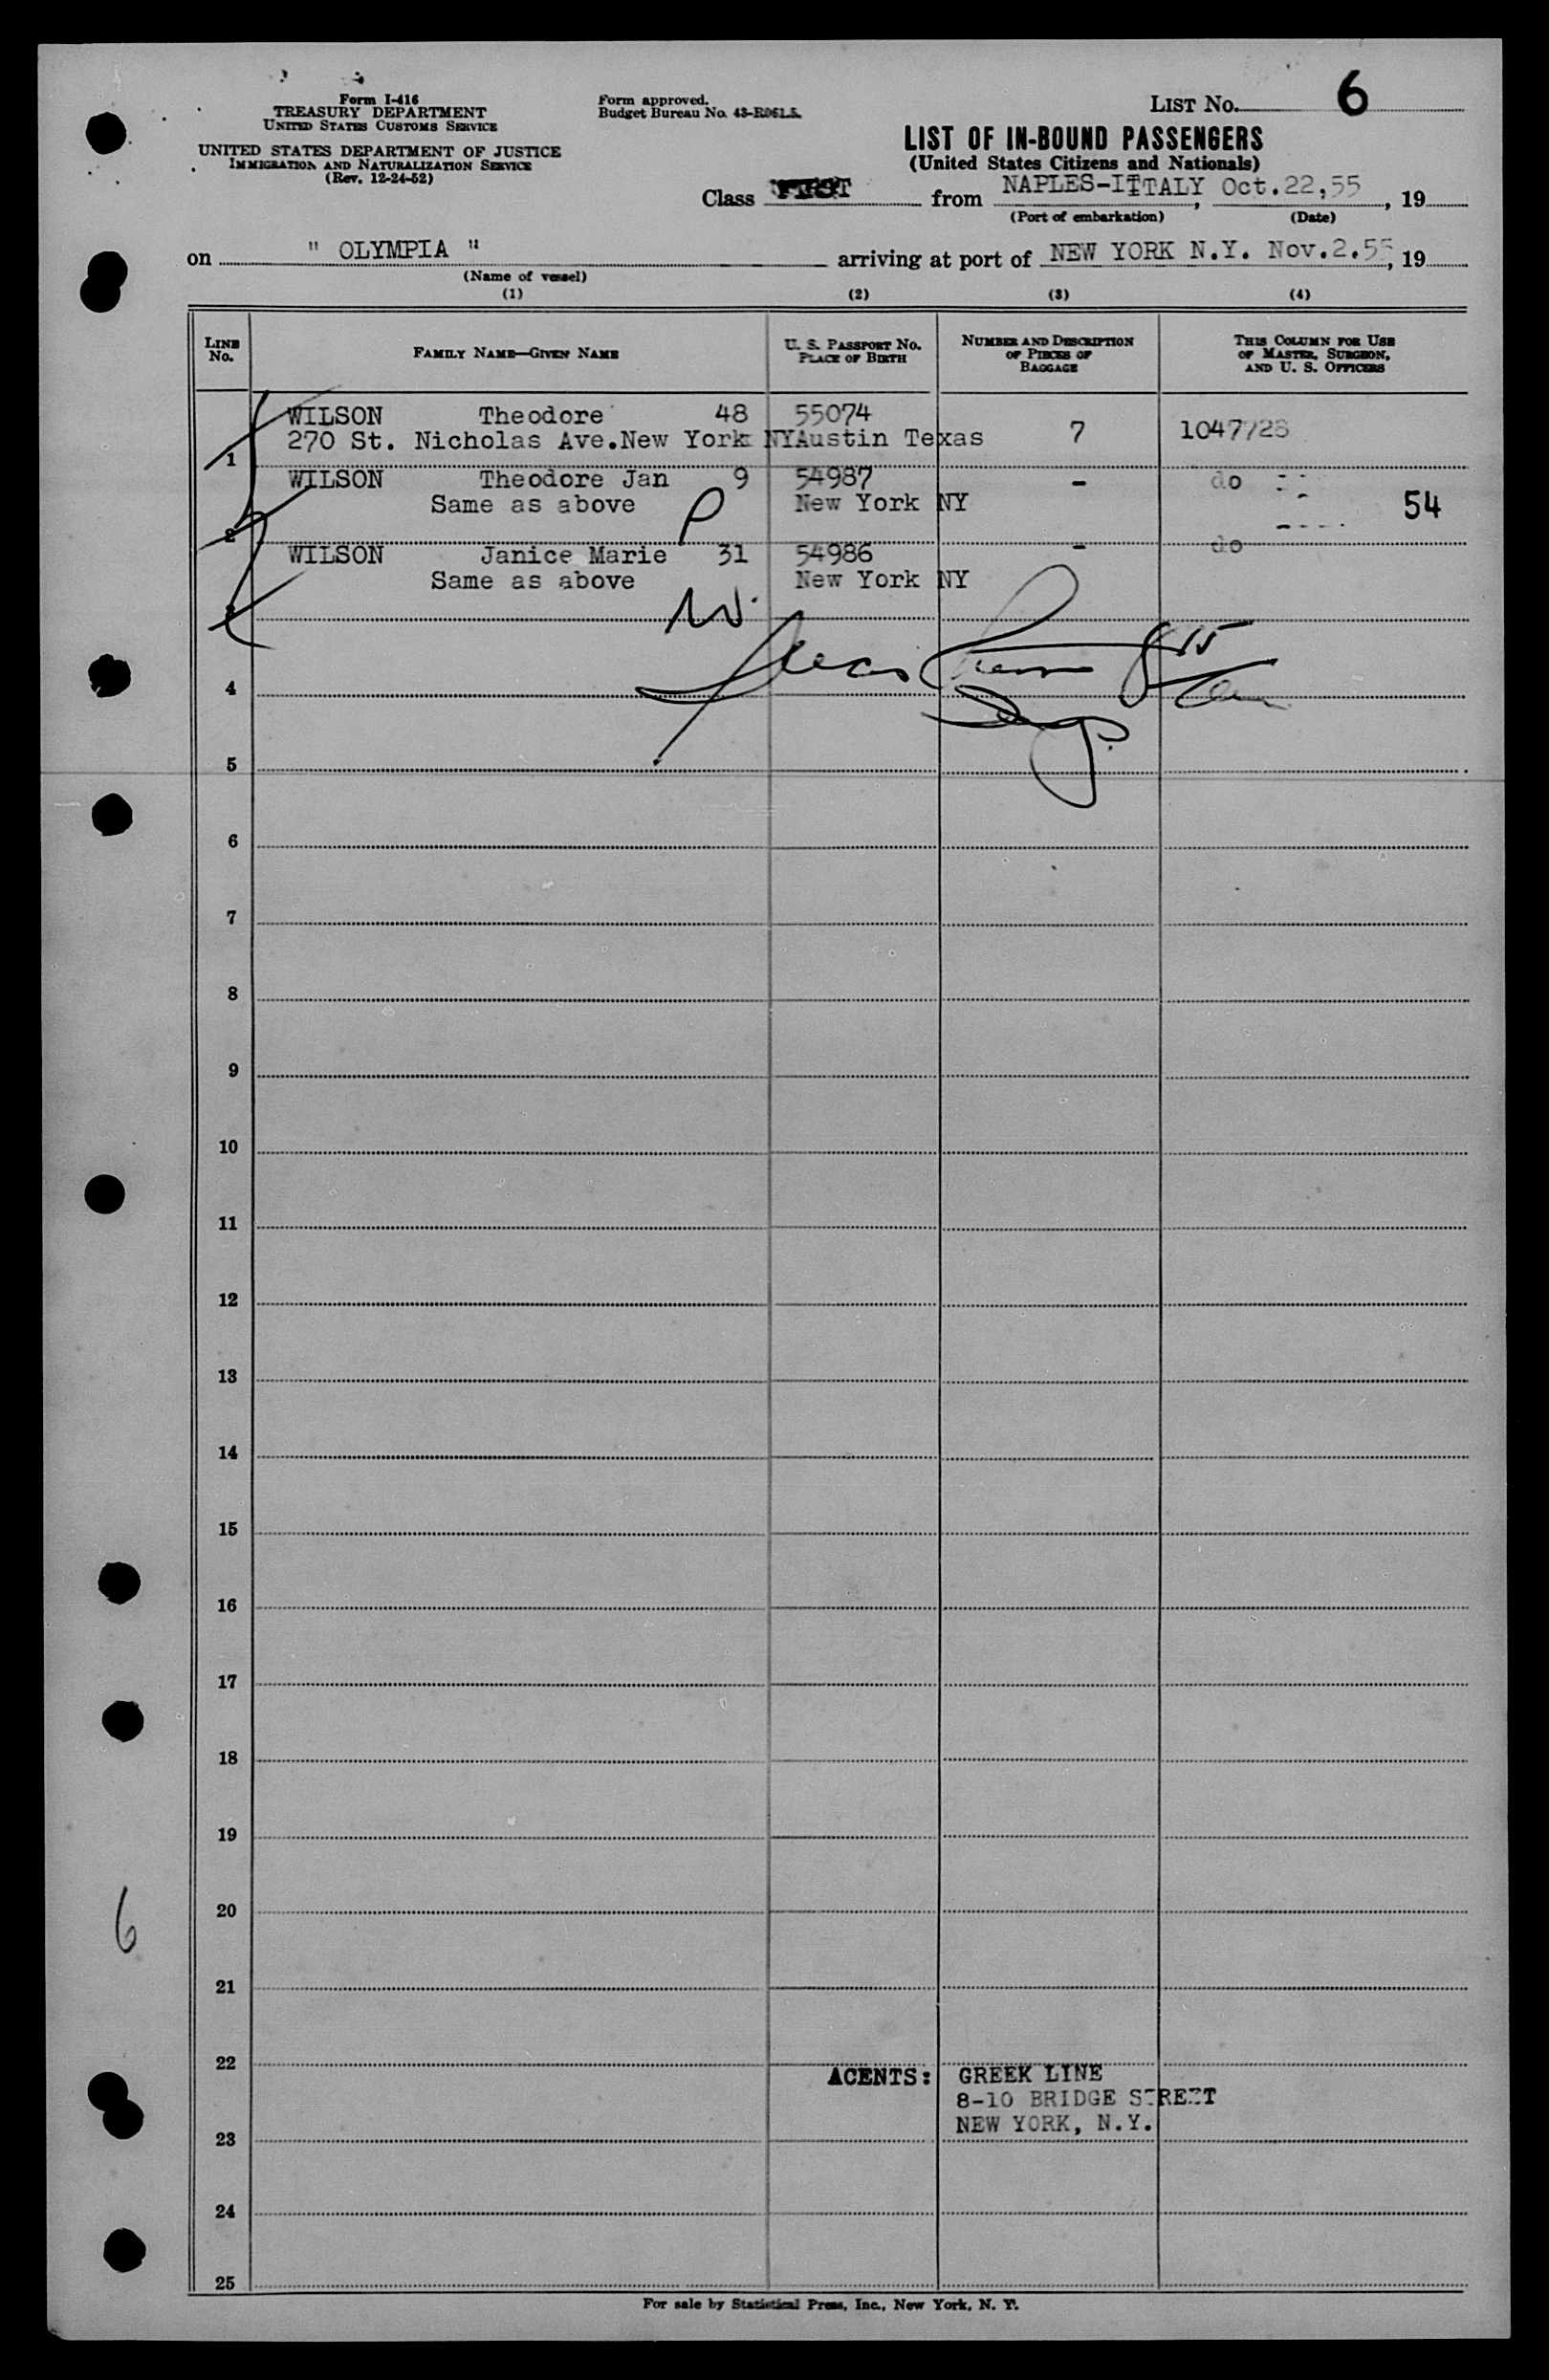 Form I-416
TREASURY DEPARTMENT
UNITED STATES CUSTOMS SERVICE
UNITED STATES DEPARTMENT OF JUSTICE
IMMIGRATION AND NATURALIZATION SERVICE
(Rev. 12-24-52)
Form approved.
Budget Bureau No. 43-R061.5.
LIST NO. 6
LIST OF IN-BOUND PASSENGERS
(United States Citizens and Nationals)
Class FIRST from NAPLES-ITTALY, Oct.22,55, 19
(Port of embarkation) (Date)
on " OLYMPIA " arriving at port of NEW YORK N.Y. Nov.2.55, 19
(Name of vessel)
(1) (2) (3) (4)
LINE NO. FAMILY NAME—GIVEN NAME U. S. PASSPORT NO. PLACE OF BIRTH NUMBER AND DESCRIPTION OF PIECES OF BAGGAGE THIS COLUMN FOR USE OF MASTER, SURGEON, AND U. S. OFFICERS
WILSON Theodore 48 55074
1 270 St. Nicholas Ave.New York NY Austin Texas 7 1047/28
WILSON Theodore Jan 9 54987 - do
2 Same as above P New York NY 54
WILSON Janice Marie 31 54986 - do
3 Same as above New York NY
W.
4
5
6
7
8
9
10
11
12
13
14
15
16
17
18
19
20
6
21
22
AGENTS: GREEK LINE
8-10 BRIDGE STREET
NEW YORK, N.Y.
23
24
25
For sale by Statistical Press, Inc., New York, N. Y.